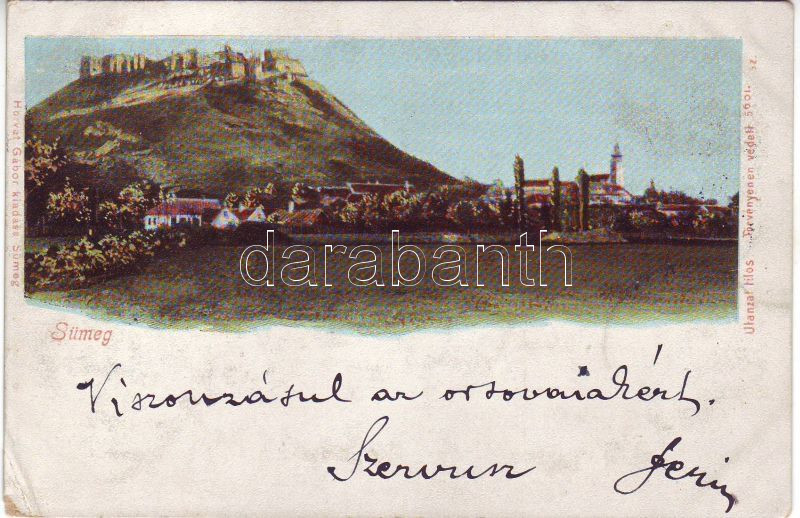 Horvat Gabor kiadasa Sümeg
Utánzat tilos Törvényenen védett 5601. sz.
darabanth
Sümeg
Viszonzásul az orsovaiakért.
Szervusz Jenő